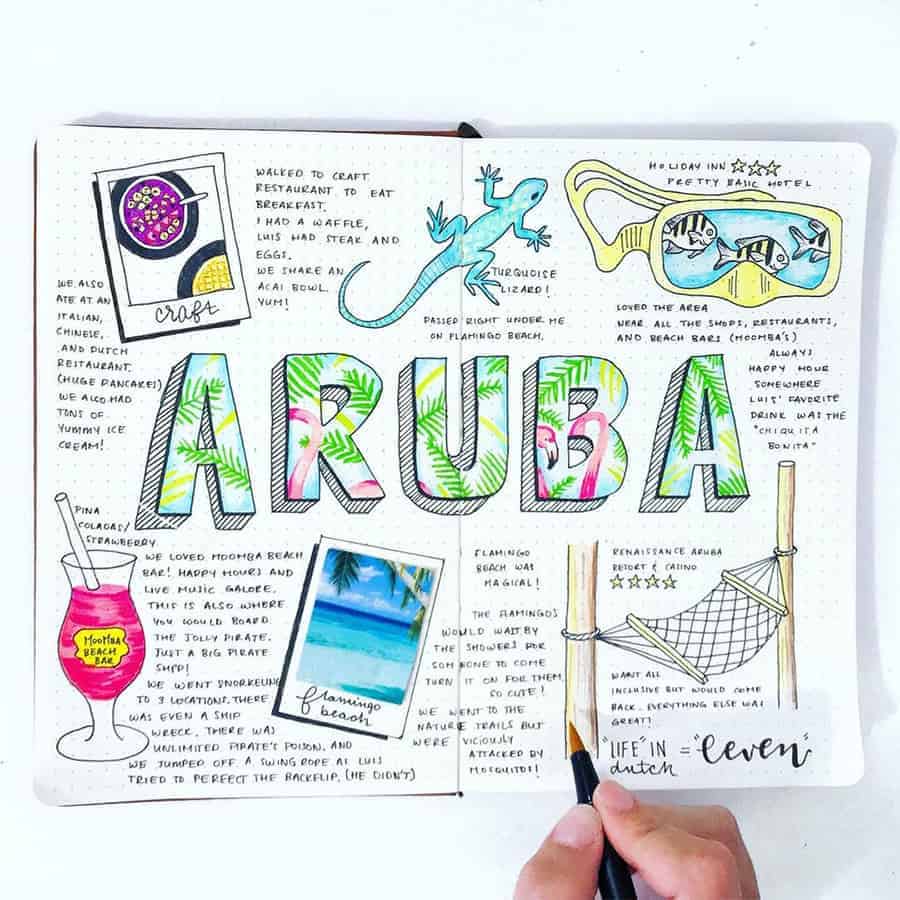 craft
WALKED TO CRAFT
RESTAURANT TO EAT
BREAKFAST.
I HAD A WAFFLE,
LUIS HAD STEAK AND
EGGS.
WE SHARE AN
ACAI BOWL.
YUM!
WE ALSO
ATE AT AN
ITALIAN,
CHINESE,
AND DUTCH
RESTAURANT.
(HUGE PANCAKES)
WE ALSO HAD
TONS OF
YUMMY ICE
CREAM!
TURQUOISE
LIZARD!
PASSED RIGHT UNDER ME
ON FLAMINGO BEACH.
HOLIDAY INN ☆☆☆
PRETTY BASIC HOTEL
LOVED THE AREA
NEAR ALL THE SHOPS, RESTAURANTS,
AND BEACH BARS (MOOMBA'S)
ALWAYS
HAPPY HOUR
SOMEWHERE
LUIS' FAVORITE
DRINK WAS THE
"CHIQUITA
BONITA"
ARUBA
PINA
COLADAS/
STRAWBERRY.
MOOMBA
BEACH
BAR
WE LOVED MOOMBA BEACH
BAR! HAPPY HOURS AND
LIVE MUSIC GALORE.
THIS IS ALSO WHERE
YOU WOULD BOARD
THE JOLLY PIRATE.
JUST A BIG PIRATE
SHIP!
WE WENT SNORKELING
TO 3 LOCATIONS. THERE
WAS EVEN A SHIP
WRECK. THERE WAS
UNLIMITED PIRATE'S POISON. AND
WE JUMPED OFF A SWING ROPE AS LUIS
TRIED TO PERFECT THE BACKFLIP. (HE DIDN'T)
flamingo
beach
FLAMINGO
BEACH WAS
MAGICAL!
THE FLAMINGOS
WOULD WAIT BY
THE SHOWERS FOR
SOMEONE TO COME
TURN IT ON FOR THEM.
SO CUTE!
WE WENT TO THE
NATURE TRAILS BUT
WERE VICIOUSLY
ATTACKED BY
MOSQUITOS!
RENAISSANCE ARUBA
RESORT & CASINO
☆☆☆☆
WANT ALL
INCLUSIVE BUT WOULD COME
BACK. EVERYTHING ELSE WAS
GREAT!
"LIFE" IN
dutch = "leven"